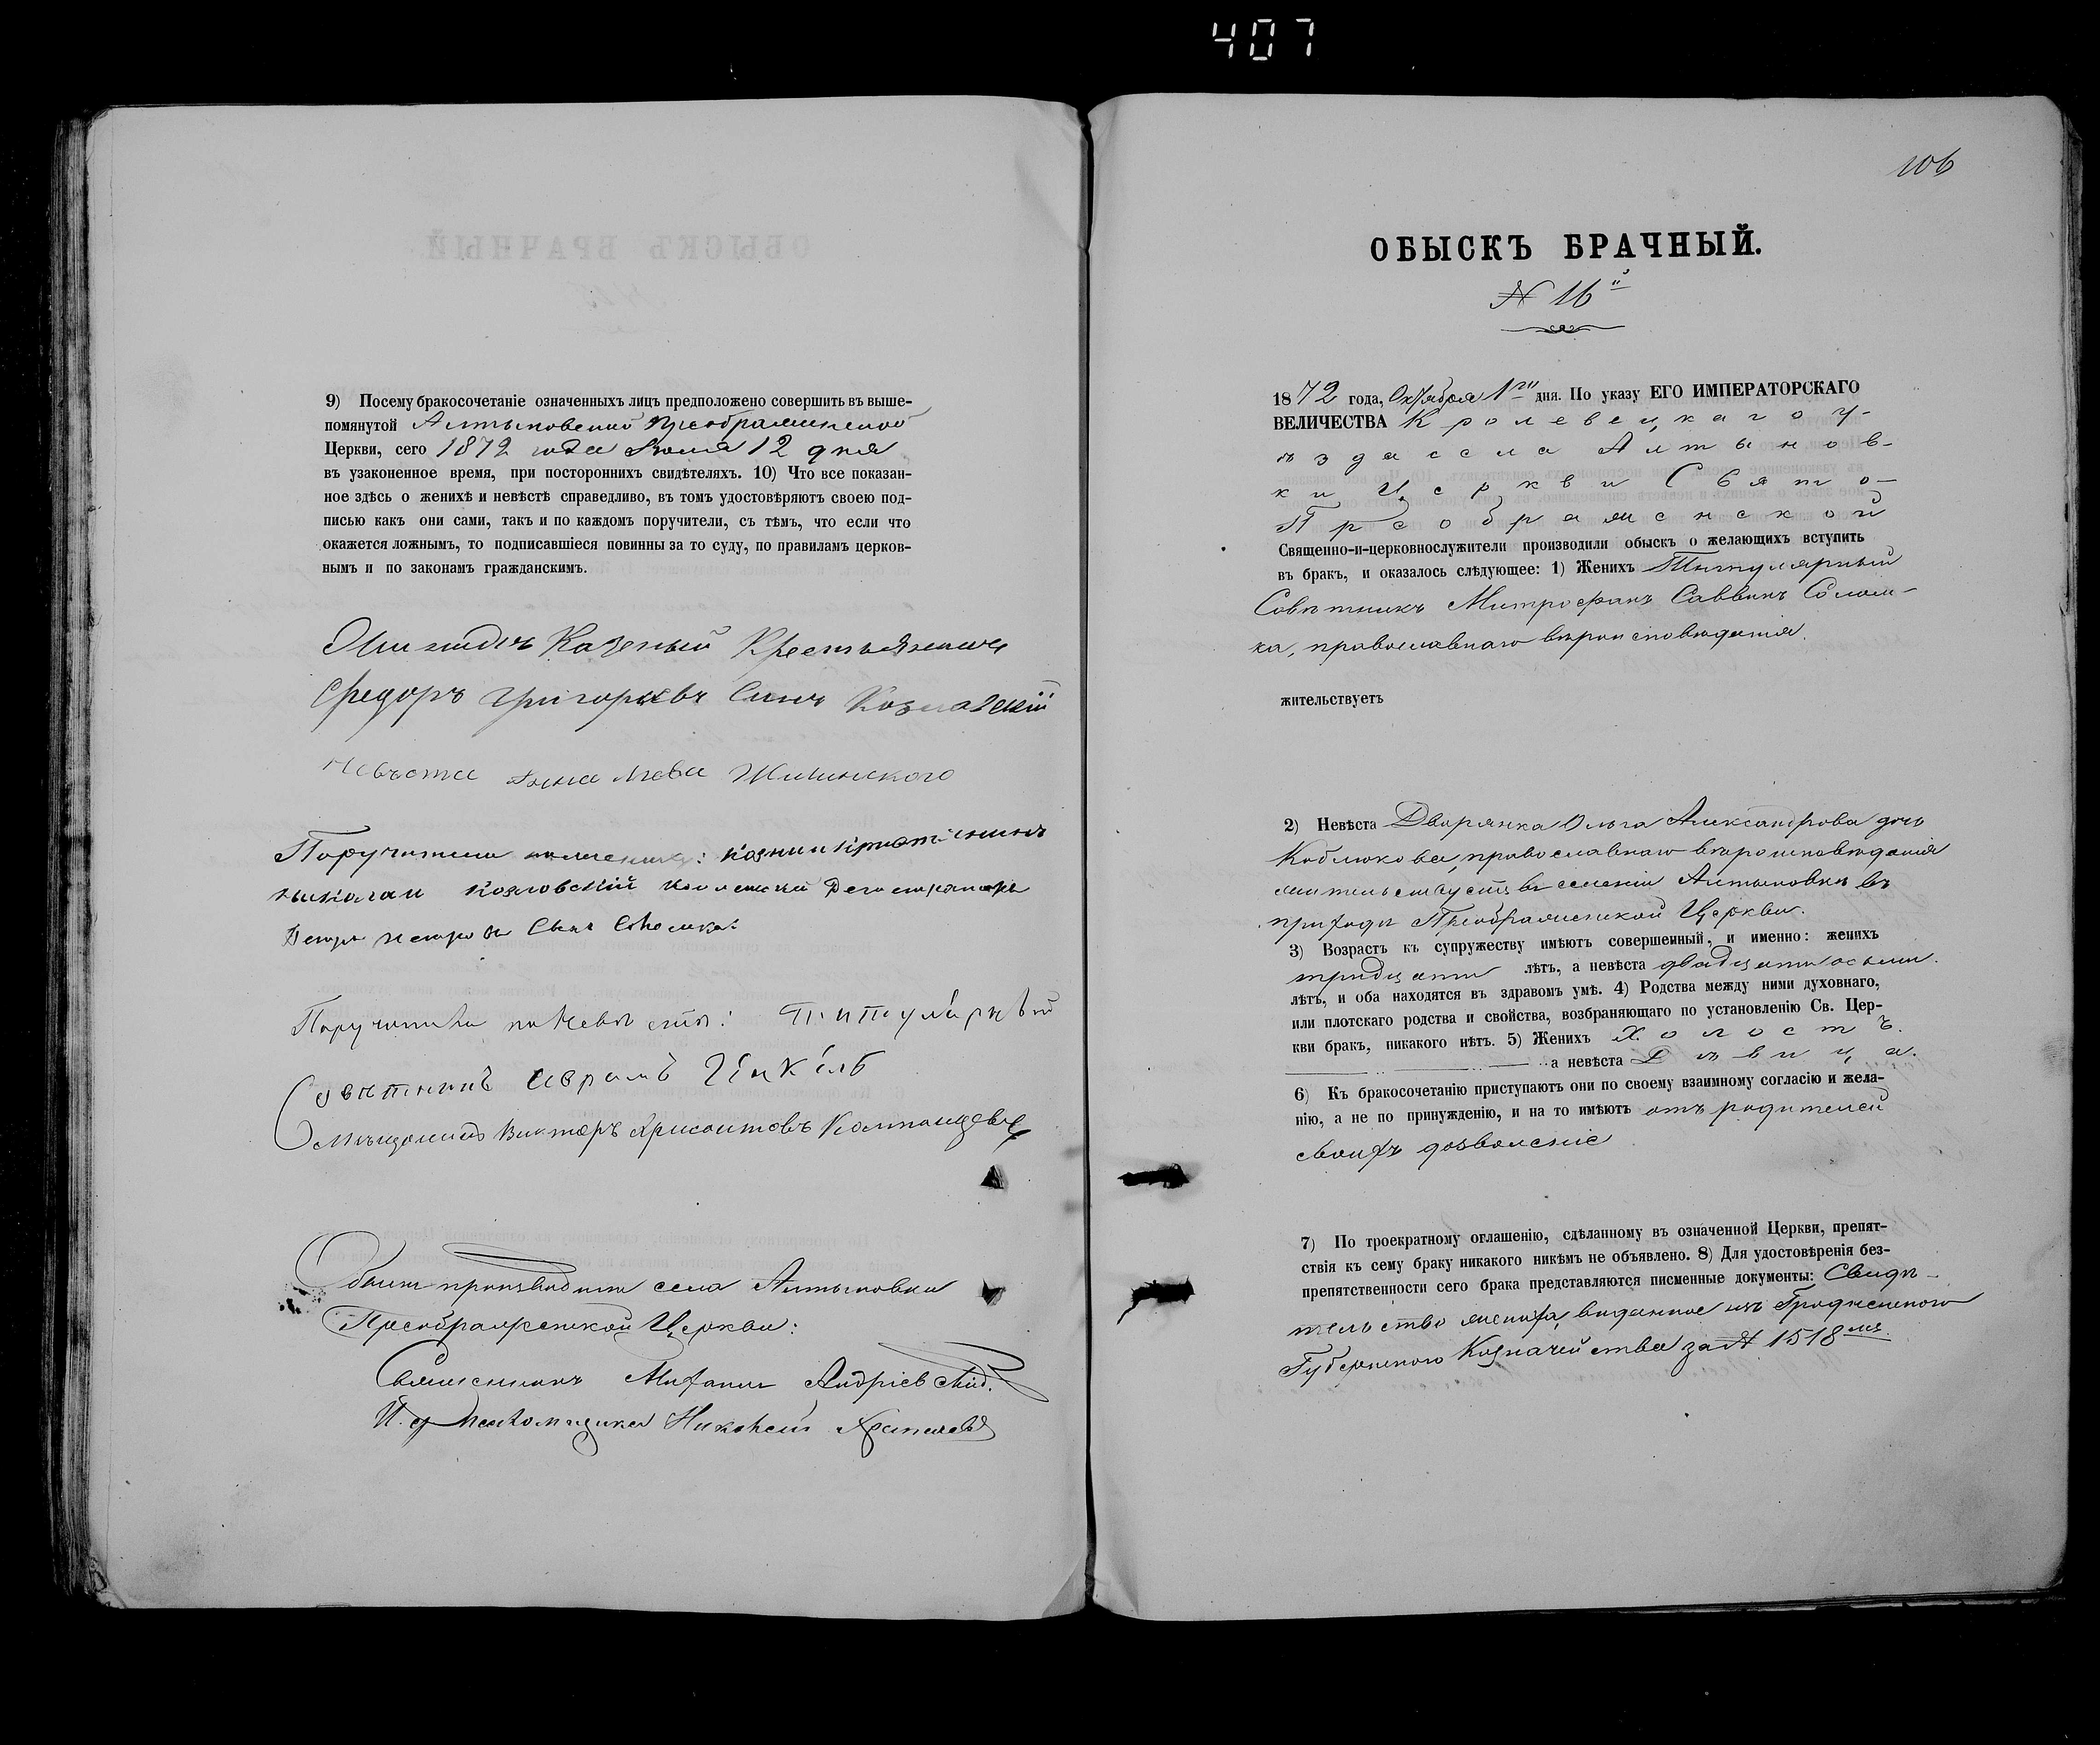 407
9) Посему бракосочетаніе означенныхъ лицъ предположено совершить въ выше-
помянутой Алтыновской Преображенской
Церкви, сего 1872 года Іюля 12 дня
въ узаконенное время, при постороннихъ свидѣтеляхъ. 10) Что все показан-
ное здѣсь о женихѣ и невѣстѣ справедливо, въ томъ удостовѣряютъ своею под-
писью какъ они сами, такъ и по каждомъ поручители, съ тѣмъ, что если что
окажется ложнымъ, то подписавшіеся повинны за то суду, по правиламъ церков-
нымъ и по законамъ гражданскимъ.
Казеный Крестьянинъ
Федоръ Григорьевъ Сынъ Козловскій
Невѣста Анна
Поручители по женихѣ:
Николай Козловскій
Петръ Петровъ Сынъ
Поручители по Невѣсте: Титулярный
Совѣтникъ
Викторъ
Обыскъ производили села Алтыновки
Преображенской Церкви:
Священникъ Михаилъ Андріевскій.
И. д. Псаломщика Николай
106
ОБЫСКЪ БРАЧНЫЙ.
N 16й
1872 года, Октября 1го дня. По указу ЕГО ИМПЕРАТОРСКАГО
ВЕЛИЧЕСТВА Кролевецкаго у-
ѣзда села Алтынов-
ки Церкви Свято-
Преображенской
Священно-и-церковнослужители производили обыскъ о желающихъ вступить
въ бракъ, и оказалось слѣдующее: 1) Женихъ Титулярный
Совѣтникъ Митрофанъ Саввинъ Солом-
ка, православнаго вѣроисповѣданія.
жительствуетъ
2) Невѣста Дворянка Ольга Александрова дочь
Коблюкова, православнаго вѣроисповѣданія
жительствуетъ въ селеніи Алтыновкѣ въ
приходѣ Преображенской Церкви.
3) Возрастъ къ супружеству имѣютъ совершенный, и именно: женихъ
тридцати лѣтъ, а невѣста двадцати осьми.
лѣтъ, и оба находятся въ здравомъ умѣ. 4) Родства между ними духовнаго,
или плотскаго родства и свойства, возбраняющаго по установленію Св. Цер-
кви бракъ, никакого нѣтъ. 5) Женихъ Холостъ.
а невѣста Дѣвица.
6) Къ бракосочетанію приступаютъ они по своему взаимному согласію и жела-
нію, а не по принужденію, и на то имѣютъ отъ родителей
своихъ дозволеніе
7) По троекратному оглашенію, сдѣланному въ означенной Церкви, препят-
ствія къ сему браку никакого никѣмъ не объявлено. 8) Для удостовѣренія без-
препятственности сего брака представляются писменные документы: Свидѣ-
тельство жениха, выданное изъ Гродненского
Губернского Казначейства за N 1518мъ.